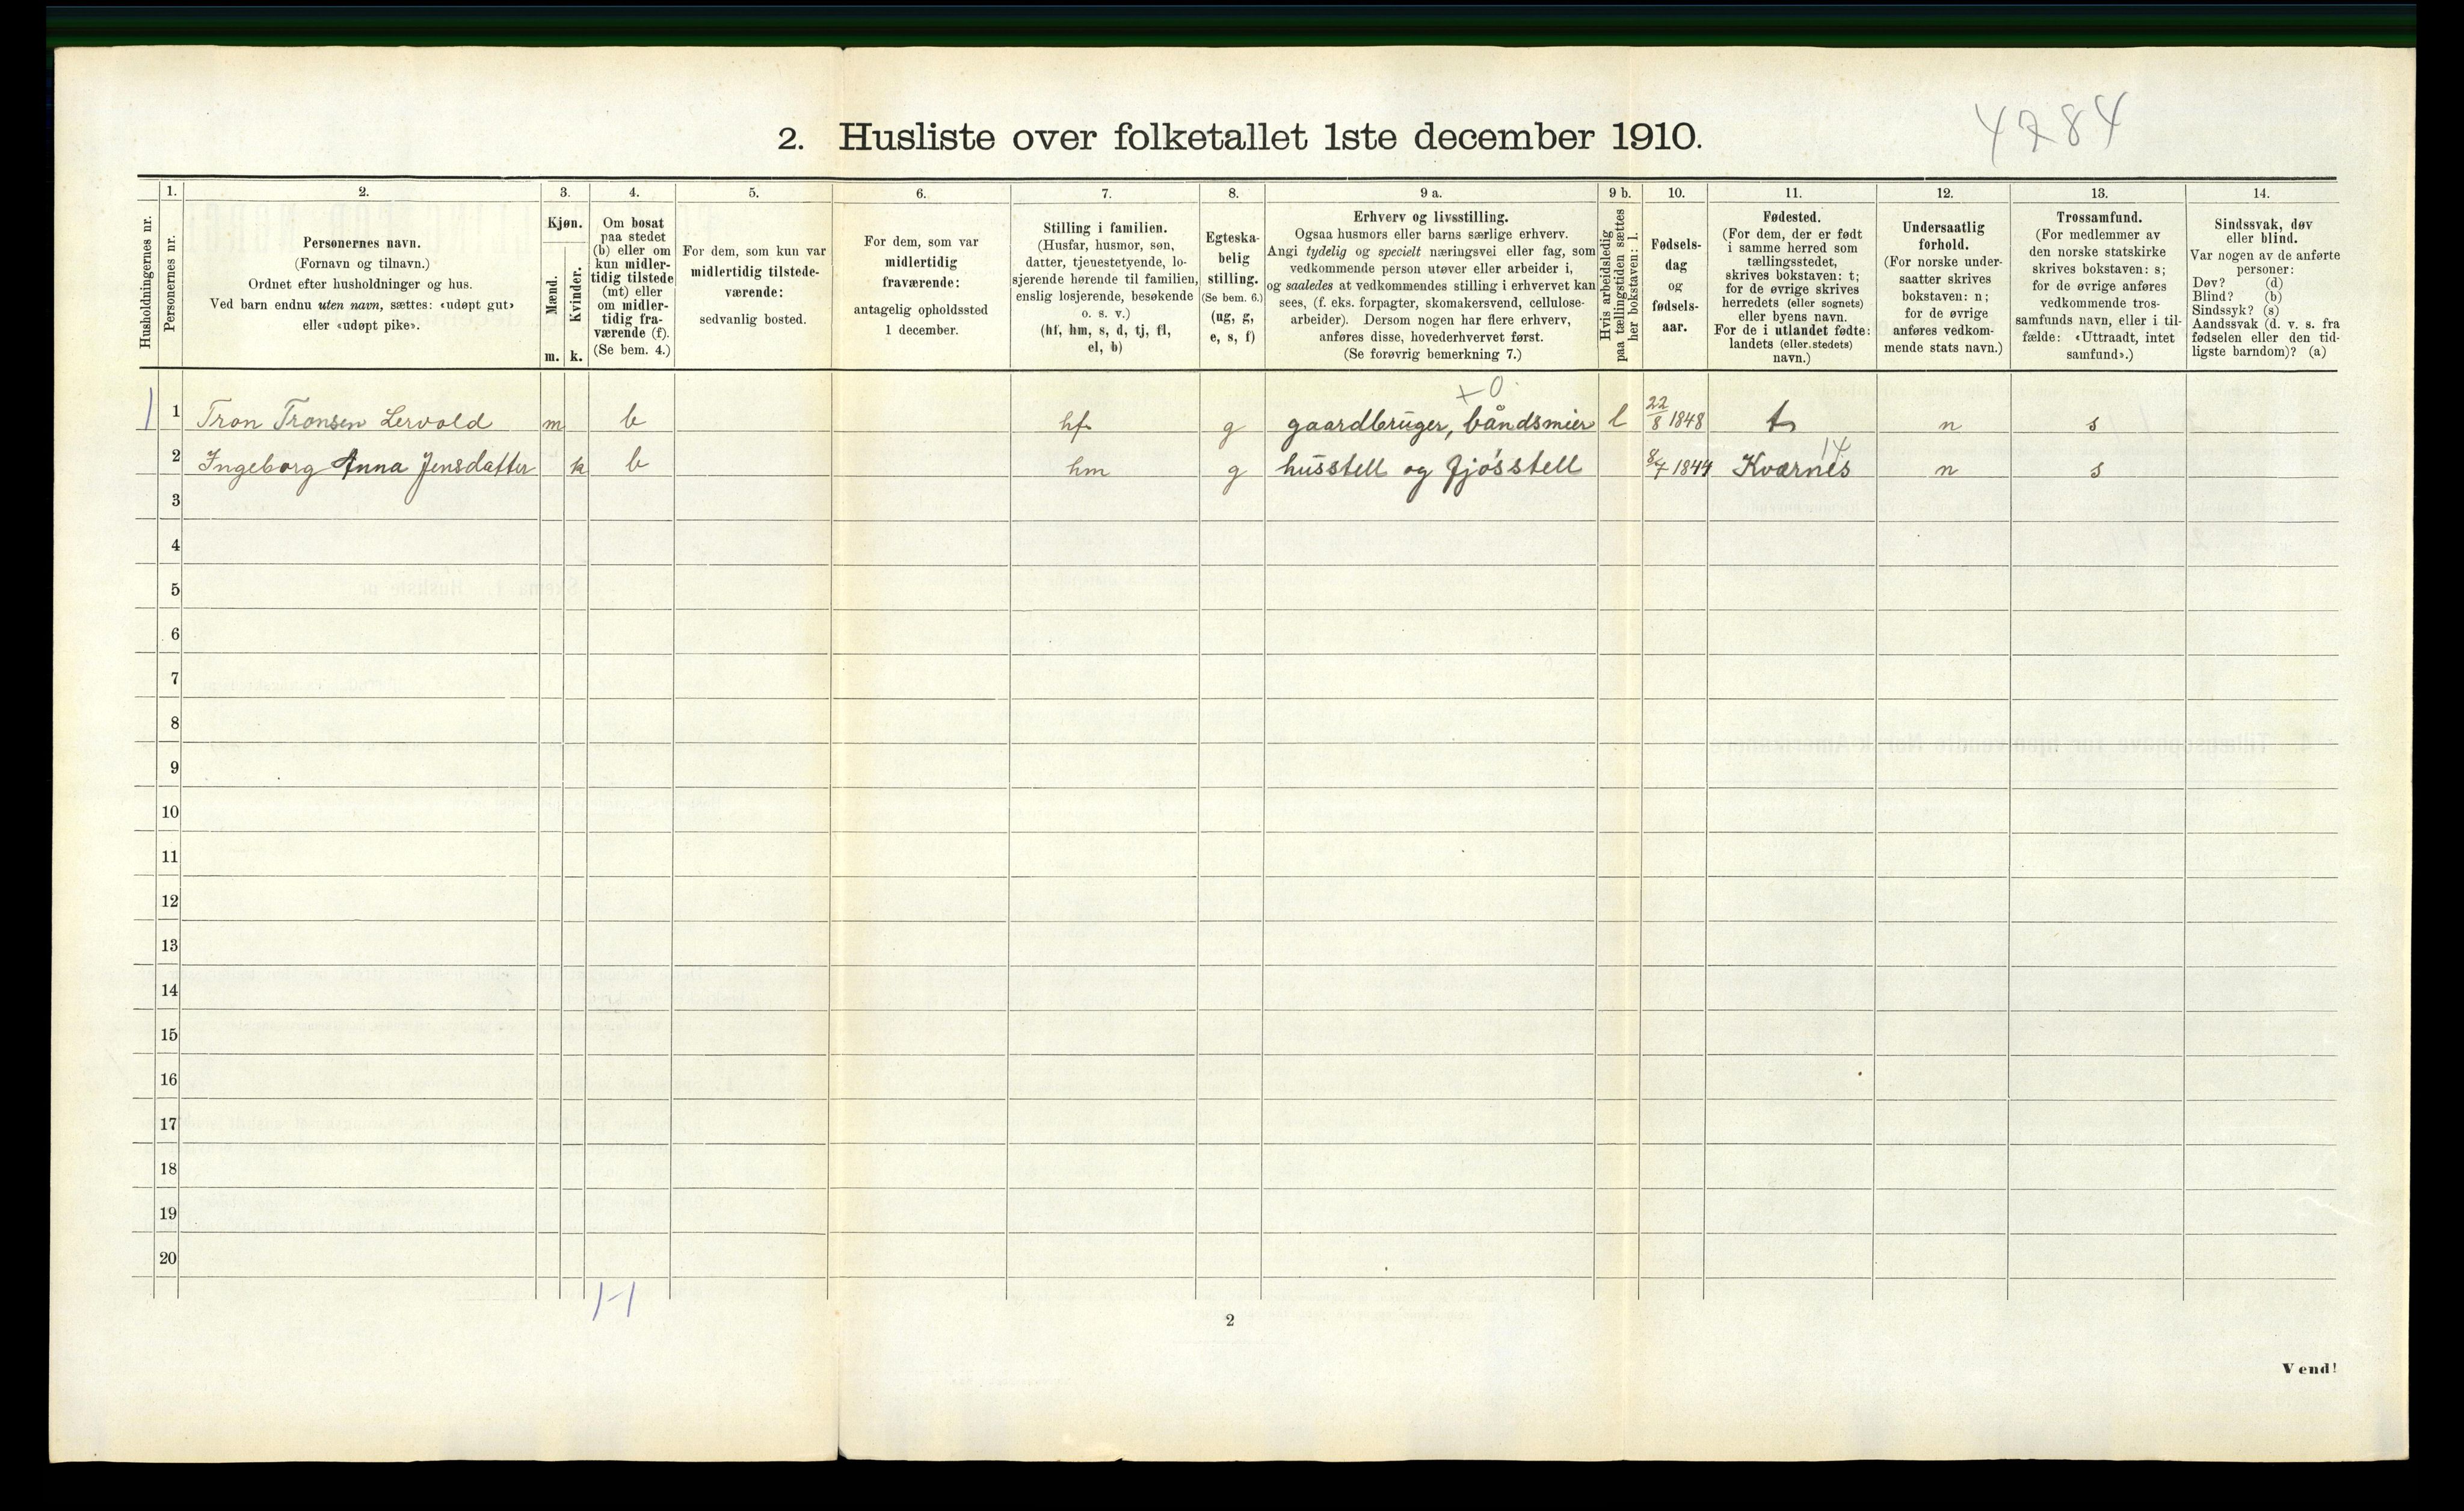 4784
2. Husliste over folketallet 1ste december 1910.
Husholdningernes nr.
1.
Personernes nr.
2.
Personernes navn.
(Fornavn og tilnavn.)
Ordnet efter husholdninger og hus.
Ved barn endnu uten navn, sættes: «udøpt gut»
eller «udøpt pike».
3.
Kjøn.
Mænd.
Kvinder.
m. k.
4.
Om bosat
paa stedet
(b) eller om
kun midler-
tidig tilstede
(mt) eller
om midler-
tidig fra-
værende (f).
(Se bem. 4.)
5.
For dem, som kun var
midlertidig tilstede-
værende:
sedvanlig bosted.
6.
For dem, som var
midlertidig
fraværende:
antagelig opholdssted
1 december.
7.
Stilling i familien.
(Husfar, husmor, søn,
datter, tjenestetyende, lo-
sjerende hørende til familien,
enslig losjerende, besøkende
o. s. v.)
(hf, hm, s, d, tj, fl,
el, b)
8.
Egteska-
belig
stilling.
(Se bem. 6.)
(ug, g,
e, s, f)
9 a.
Erhverv og livsstilling.
Ogsaa husmors eller barns særlige erhverv.
Angi tydelig og specielt næringsvei eller fag, som
vedkommende person utøver eller arbeider i,
og saaledes at vedkommendes stilling i erhvervet kan
sees, (f. eks. forpagter, skomakersvend, cellulose-
arbeider). Dersom nogen har flere erhverv,
anføres disse, hovederhvervet først.
(Se forøvrig bemerkning 7.)
9 b.
Hvis arbeidsledig
paa tællingstiden sættes
her bokstaven: l.
10.
Fødsels-
dag
og
fødsels-
aar.
11.
Fødested.
(For dem, der er født
i samme herred som
tællingsstedet,
skrives bokstaven: t;
for de øvrige skrives
herredets (eller sognets)
eller byens navn.
For de i utlandet fødte:
landets (eller stedets)
navn.)
12.
Undersaatlig
forhold.
(For norske under-
saatter skrives
bokstaven: n;
for de øvrige
anføres vedkom-
mende stats navn.)
13.
Trossamfund.
(For medlemmer av
den norske statskirke
skrives bokstaven: s;
for de øvrige anføres
vedkommende tros-
samfunds navn, eller i til-
fælde: «Uttraadt, intet
samfund».)
14.
Sindssvak, døv
eller blind.
Var nogen av de anførte
personer:
Døv? (d)
Blind? (b)
Sindssyk? (s)
Aandssvak (d. v. s. fra
fødselen eller den tid-
ligste barndom)? (a)
+0
1 1 Tron Tronsen Lervold m b hf g gaardbruger, båndsmier l 22/8 1848 t n s
14
2 Ingeborg Anna Jensdatter k b hm g husstell og fjósstell 8/7 1844 Kværnes n s
3
4
5
6
7
8
9
10
11
12
13
14
15
16
17
18
19
20
1-1
2
Vend!